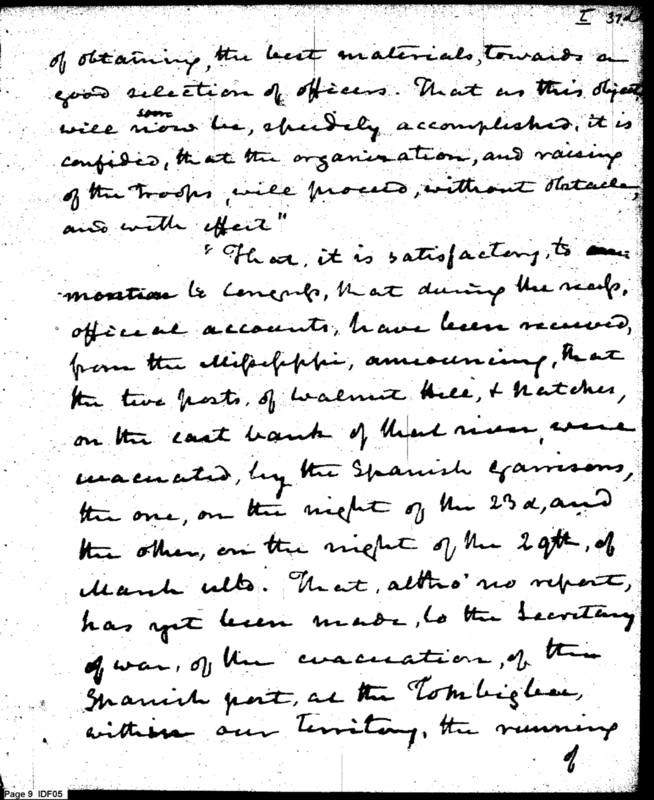 I 37d
of obtaining, the best materials, towards a
good selection of officers. That as this object
soon
will now be, speedely accomplished, it is
confided, that the organization, and raising
of the Troops, will proceed, without obstacle,
and with effect"
"That, it is satisfactory, to
mention to Congress, that during the recess,
official accounts, have been received,
from the Missisippi, announcing, that
the two posts, of Walnut Hill, & Natches,
on the east bank of that river, were
evacuated, by the Spanish garrisons,
the one, on the night of the 23d, and
the other, on the night of the 29th, of
March ulto. That, altho' no report,
has yet been made, to the Secretary
of war, of the evacuation, of the
Spanish port, at the Tombigbee,
within our Territory, the running
of
Page 9 IDF05